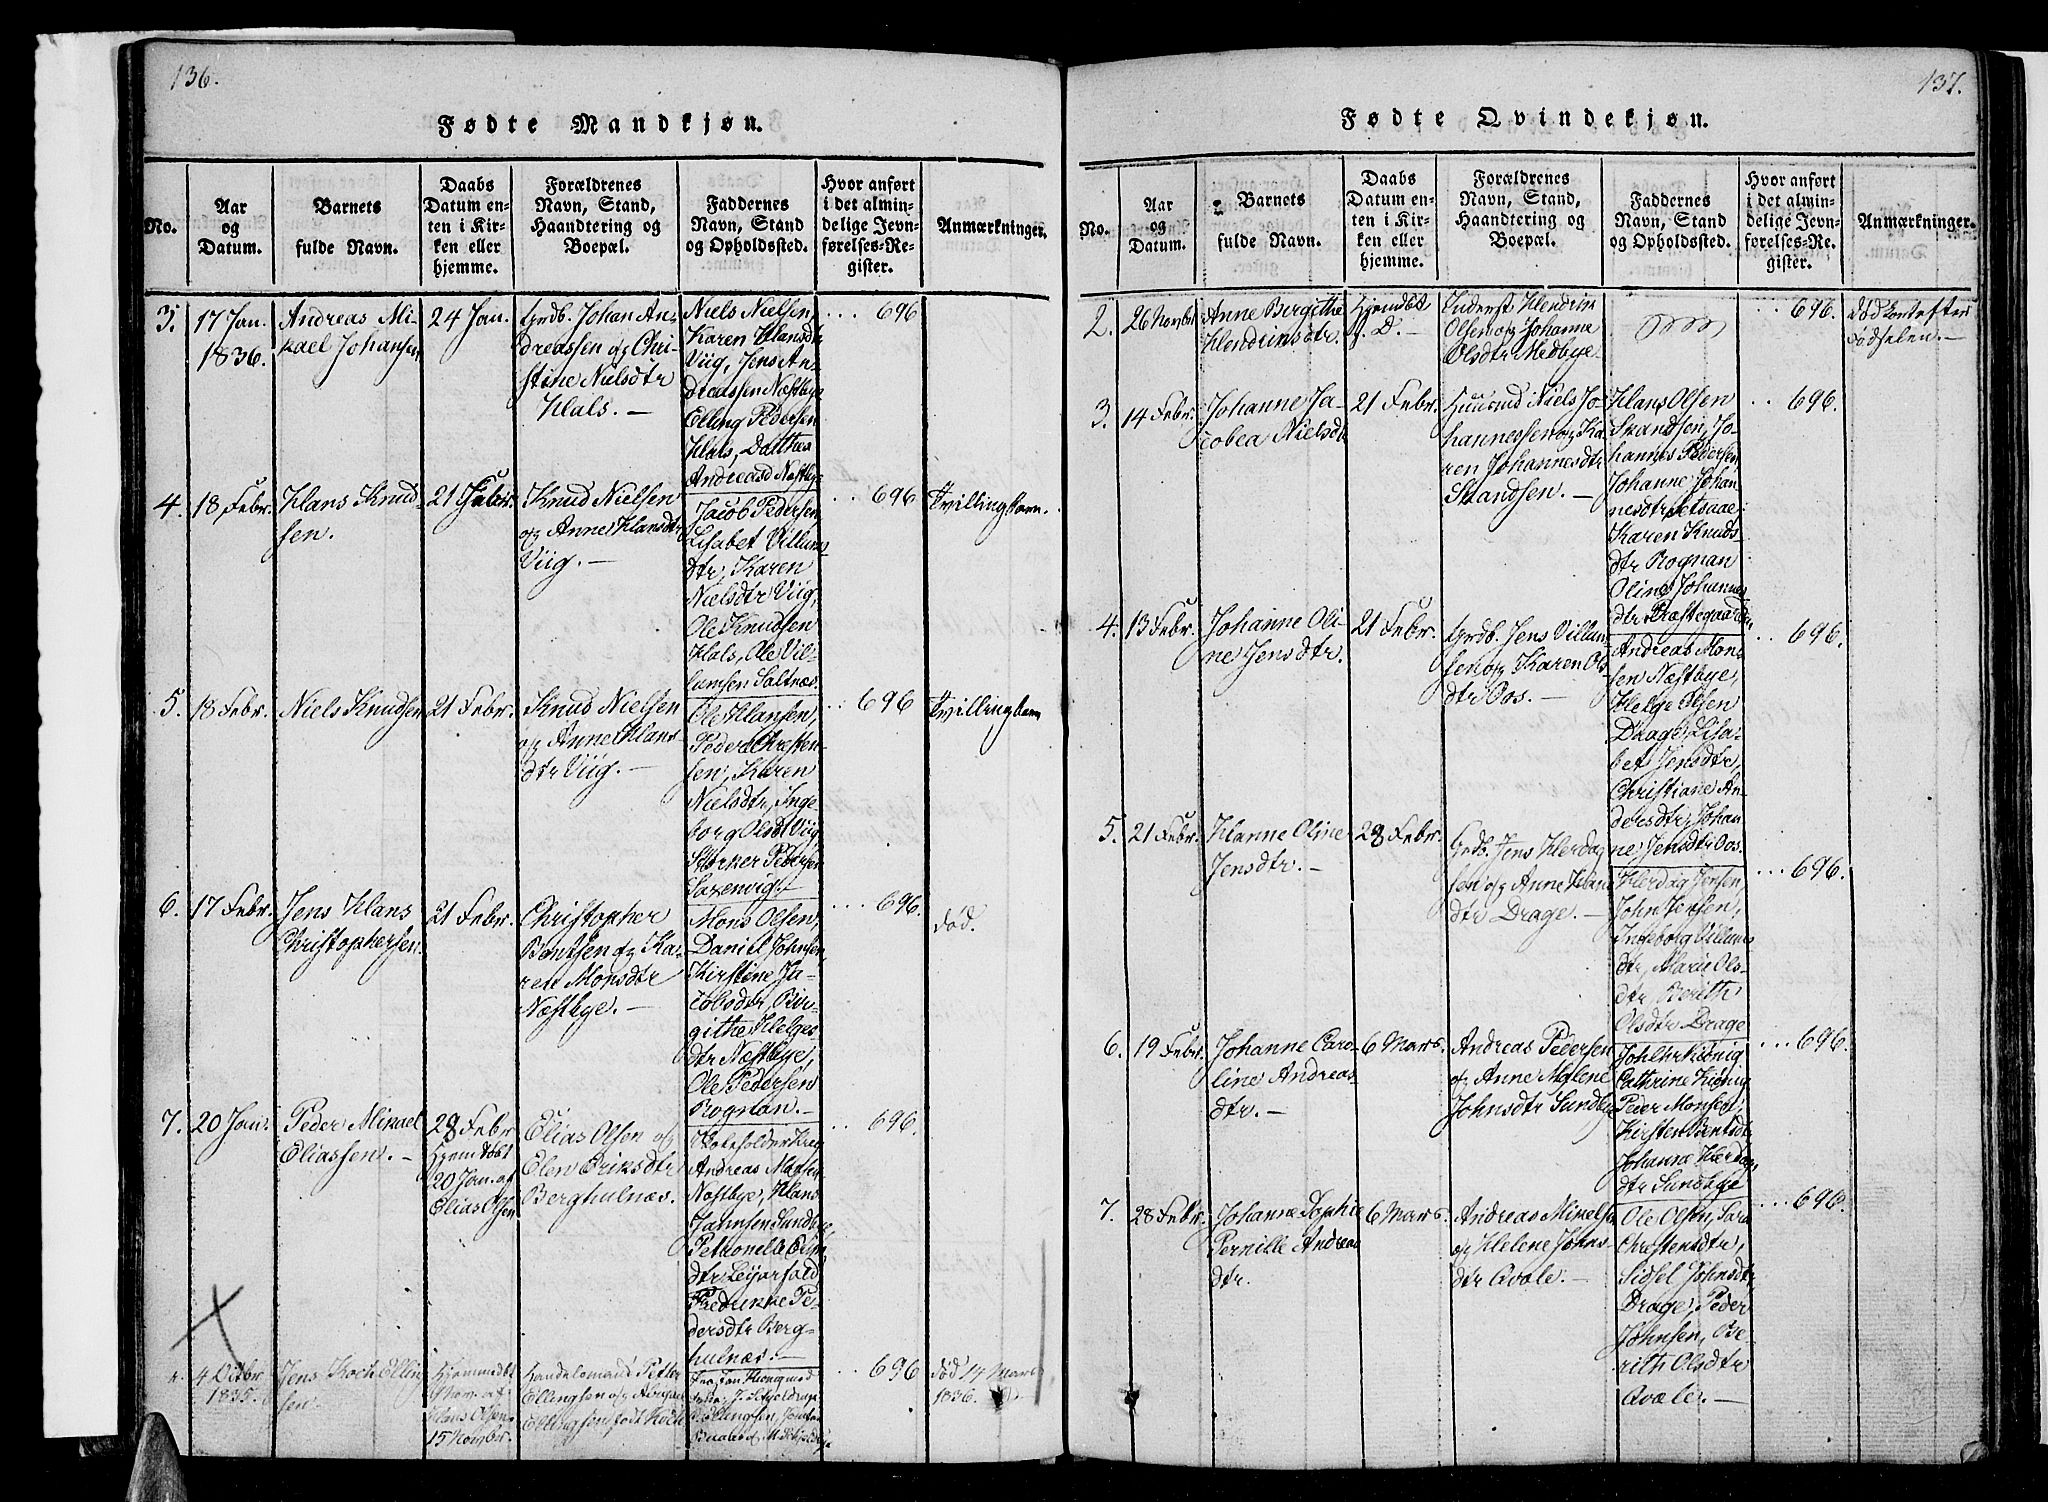 136.
Fødte Mandkjøn.
No.
Aar
og
Datum.
Barnets
fulde Navn.
Daabs
Datum en-
ten i Kir-
ken eller
hjemme.
Forældrenes
Navn, Stand,
Haandtering og
Boepæl.
Faddernes
Navn, Stand
og Opholdssted.
Hvor anført
i det almin-
delige Jevn-
førelses-Re-
gister.
Anmærkninger.
3.
17 Jan.
1836.
Andreas Mi-
kael Johansen
24 Jan.
Grdb. Johan An-
dreassen og Chri-
stine Nielsdtr
Hals. —
Niels Nielsen,
Karen Hansdtr
Viig, Jens An-
dreassen Næstbye
Elling Pedersen
Hals, Dorthea
Andreasd Næstbye
696
4.
18 Febr.
Hans Knud-
sen.
21 Febr.
Knud Nielsen
og Anne Hansdtr
Viig. —
Jacob Pedersen,
Lisabet Villums-
dtr, Karen
Nielsdtr Viig,
Ole Knudsen
Hals, Ole Vil-
lumsen Saltnæs.
696
Tvillingbarn.
5.
18 Febr.
Niels Knudsen
21 Febr.
Knud Nielsen
og Anne Hans
dtr Viig. —
Ole Hansen,
Peder Christen-
sen, Karen
Nielsdtr, Inge-
borg Olsdt Viig
Størker Pedersen
Saxenvig. —
696
Tvillingbarn
6.
17 Febr.
Jens Hans
Christophersen.
21 Febr.
Christopher
Bentsen og Ka-
ren Monsdtr
Næstbye. —
Mons Olsen,
Daniel Johnsen,
Kirstine Ja-
cobsdtr, Bir-
githe Helges
dtr Næstbye,
Ole Pedersen
Rognan. —
696.
død.
7.
20 Jan.
Peder Mikael
Eliassen. —
28 Febr
Hjemdøbt
20 Jan. af
Elias Olsen
Elias Olsen og
Elen Eriksdtr
Berghulnæs.
Andreas
Næstbye, Hans
Petronelle
dtr Leyarfald
Fredrikke Pe-
dersdtr Berg-
hulnæs. —
696.
4 Octbr
1835.
Jens Koch Elling
sen.
Hjemmedøbt
af
Hans Olsen
15 Novbr.
Handelsmand Petter
Ellingsen og
Ellingsen født Koch
696
død 14 Marts
1836.
137.
Fødte Qvindekjøn.
No.
Aar
og
Datum.
Barnets
fulde Navn.
Daabs
Datum en-
ten i Kir-
ken eller
hjemme.
Forældrenes
Navn, Stand,
Haandtering og
Boepæl.
Faddernes
Navn, Stand
og Opholdssted.
Hvor anført
i det almin-
delige Jevn-
førelses-Re-
gister.
Anmærkninger.
2.
26 Novbr
Anne Bergithe
Hendriksdtr.
Hjemdøbt
J. D. —
Inderst Hendrik
Olsen og Johanna
Olsdtr Medbye
696.
død kort efter
Fødselen. —
3.
14 Febr.
Johanne Ja-
cobea Nielsdt
21 Febr.
Huusmd Niels Jo-
hannessen og Ka-
ren Johannesdtr
Strandsen. —
Hans Olsen
Skandsen, Jo-
hannes Pedersen,
Johanne Johan
nesdtr
Karen Knuds-
dtr Rognan
Oline Johannes
dtr Præstegaarden
696.
4.
13 Febr.
Johanne Oli-
ne Jensdtr.
21 Febr.
Grdb. Jens Villum
sen og Karen Ols
dtr Oos. —
Andreas Mons
sen Næstbye,
Helge Olsen
Drage, Lisa-
bet Jensdtr,
Christiane An-
dersdtr, Johan
ne Jensdtr Oos.
696.
5.
21 Febr.
Hanne Oline
Jensdtr. —
28 Febr.
Grdb. Jens Herdag
sen og Anne Hans
dtr Drage. —
Herdag Jensen,
John Jensen,
Ingeborg Villums
dtr, Marie Ols-
dtr, Berith
Olsdtr Drage
696.
6.
19 Febr.
Johanne Caro-
line Andreas
dtr. —
6 Mars.
Andreas Pedersen
og Anne Malene
Johnsdtr Sundbye
Cathrine
Peder Monsen,
Kirsten Bentsdt,
Johanna Herdags
dtr Sundbye
696.
7.
28 Febr.
Johanne Sophie
Pernille Andreas
dtr.
6 Mars.
Andreas Mikelsen
og Helene Johns-
dtr Qvale. —
Ole Olsen, Sara
Christensdtr,
Sidsel Johnsdtr
Drage, Peder
Johnsen, Be-
rith Olsdtr
Qvale. —
696.